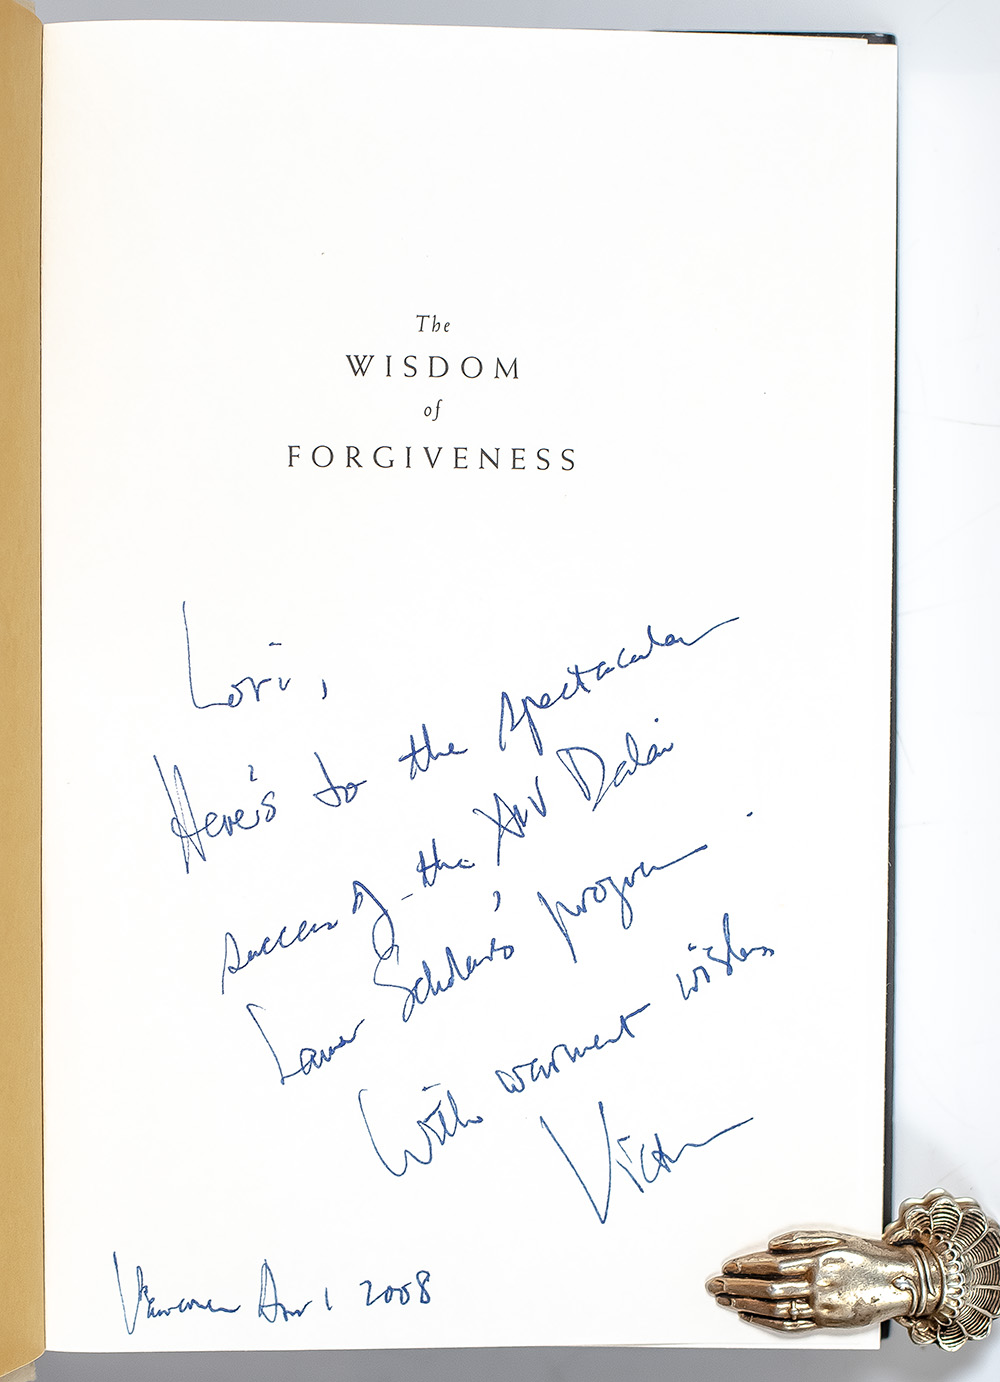 The
WISDOM
of
FORGIVENESS
Lori,
Here's to the spectacular
success of the XIV Dalai
Lama Scholars' program.
With warmest wishes
Victor
Vancouver Apr 1 2008